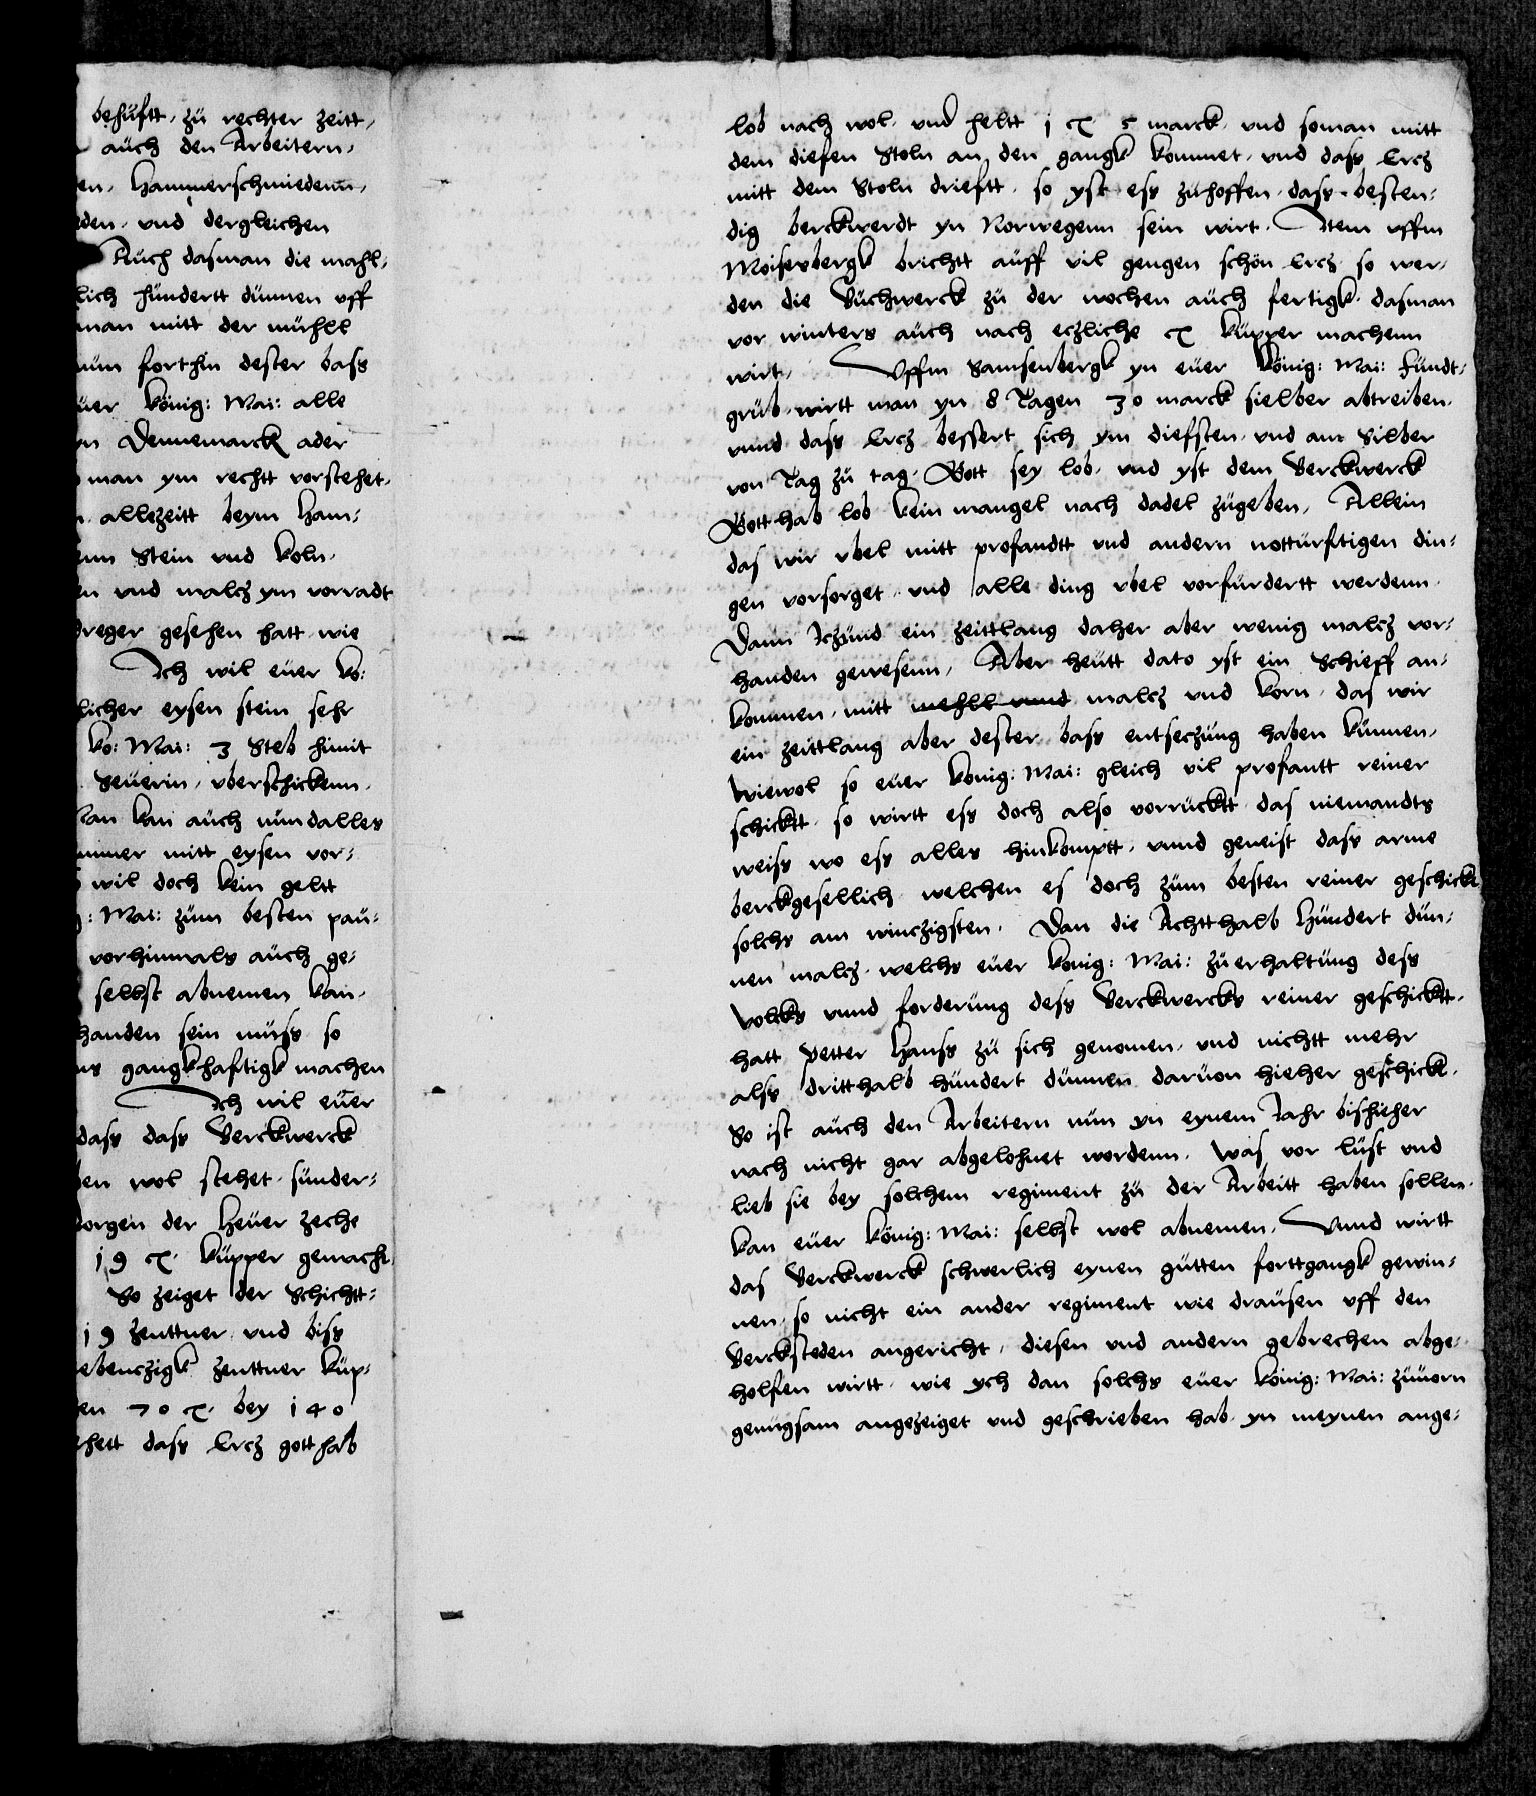 behuftt, zu rechter zeitt,
auch den Arbeitern,
en, Hammerschmiedenn,
den, vnd dergleichen
Auch dasman die mahl,
lich hundertt dunnen vff
man mitt der muhll
nun forthin dester bass
uer König: Mai: alle
yn Dennemarck ader
man ym rechtt vorstehet,
allezeitt beym Ham,
nn Stein vnd Koln,
en vnd malcz ym vorradt
dreger gesehen hatt wie
Ich wil euer ko:
licher eysen stein sehr
ko: Mai: 3 Steb himit
Seuerin, vberschickenn,
an kan auch nundalles
mmer mitt eysen vor,
wil doch kein geltt
: Mai: zum besten pau,
vorhinnals auch ge,
selbst abnemen kan,
handen sein muss so
gangkhafftigk machen
Ich wil euer
dass dass Berckwerck
ben wol stehet, sunder,
borgen der Heuer zeche
19 Ct. kupper gemacht,
So zeiget der Schichtt,
19 zenttner, vnd biss
ebenczigk zenttner kup,
en 70 Ct. bey 140
hett dass Ercz gotthab
lob nach wol, vnd heltt 1 Ct 5 marck, vnd soman mitt
dem diefen Stoln an den gangk kommet, vnd dass Ercz
mitt dem Stoln drieftt, so yst ess zuhoffen, dass besten,
dig berckwerdt yn Norwegenn sein wirt. Item vffm
Moiserbergk brichtt auff vil gengen schön Ercz, so wer,
den die Buchwerck zu der wochen auch fertigk, dasman
vor winters auch nach eczliche Ct kupper machenn
wirt, Vffm Samsenbergk yn euer König: Mai: Fundt,
grub, wirtt man yn 8 Tagen 30 marck sielber abtreiben,
vnnd dass Ercz bessert sich ym diefsten, vnd am Silber
von Tag zu tag, Gott sey lob, vnd yst dem Berckwerck
Gott hab lob kein mangel nach dadel zugeben, Allein
das wir vbel mitt profandtt vnd andern notturfftigen din,
gen vorsorget, vnd alle ding vbel vorfurdertt werdenn.
Dann Iczund ein zeittlang daher aber wenig malcz vor,
handen gewesenn, Aber heutt dato yst ein Schieff an,
kommen, mitt mehll vnnd malcz vnd korn, das wir
ein zeittlang aber dester bass entseczung haben kunnen,
Wiewol so euer König: Mai: gleich vil profantt reiner
schicktt, so wirtt ess doch also vorrucktt, das niemandts
weiss wo ess alles hinkomptt, vnnd geneist dass arme
berckgesellich, welchen es doch zum besten reiner geschickt
solchs am winczigsten. Dan die Achtthalb Hundert dun,
nen malcz, welchs euer König: Mai: zuerhaltung dess
Volcks vnnd forderung dess Berckwercks reiner geschicktt,
hatt Petter Hanss zu sich genomen, vnd nichtt mehr
alss dritthalb hundert dunnen daruon hieher geschickt.
So ist auch den Arbeitern nun yn eynem Iahr bishieher
nach nicht gar abgelohnet wordenn. Was vor lust vnd
lieb sie bey solchem regiment zu der Arbeitt haben sollenn.
kan euer König: Mai: selbst wol abnemen. Vnnd wirtt
das Berckwerck schwerlich eynen gutten forttgangk gewin,
nen, so nicht ein ander regiment wie drausen vff den
Bercksteden angericht, diesen vnd andern gebrechen abge,
holffen wirtt, wie ych dan solchs euer König: Mai: zuuorn
genugsam angezeiget vnd geschrieben hab, yn meynen ange,